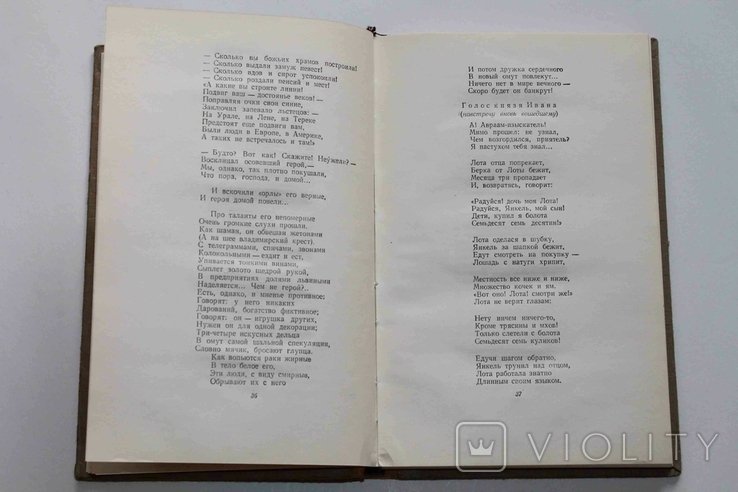 — Сколько вы божьих храмов построили!
— Сколько выдали замуж невест!
— Сколько вдов и сирот успокоили!
— Сколько роздали пенсий и мест!
«А какие вы строите линии!
Подвиг ваш — достоянье веков!»
Поправляя очки свои синие,
Заключил запевало льстецов: —
На Урале, на Лене, на Тереке
Предстоят еще подвиги вам,
Были люди в Европе, в Америке,
А таких не встречалось и там!»
— Будто? Вот как! Скажите! Неужели? —
Восклицал осовевший герой,—
Мы, однако, так плотно покушали,
Что пора, господа, и домой...
И вскочили «орлы» его верные,
И героя домой повели...
Про таланты его непомерные
Очень громкие слухи прошли.
Как шаман, он обвешан жетонами
(А на шее владимирский крест).
С телеграммами, спичами, звонами
Колокольными — ездит и ест,
Упивается тонкими винами,
Сыплет золото щедрой рукой,
В предприятиях долями львиными
Наделяется... Чем не герой?..
Есть, однако, и мнение противное:
Говорят: у него никаких
Дарований, богатство фиктивное;
Говорят: он — игрушка других,
Нужен он для одной декорации;
Три-четыре искусных дельца
В омут самой шальной спекуляции,
Словно мячик, бросают глупца.
Как вопьются раки жирные
В тело белое его,
Эти люди, с виду смирные,
Обрывают их с него
36
И потом дружка сердечного
В новый омут повлекут...
Ничего нет в мире вечного —
Скоро будет он банкрут!
Голос князя Ивана
(навстречу вновь вошедшему)
А! Авраам-изыскатель!
Мимо прошел: не узнал,
Чем возгордился, приятель?
Я пастухом тебя знал...
Лота отца попрекает,
Берка от Лоты бежит,
Месяца три пропадает
И, возвратясь, говорит:
«Радуйся! дочь моя Лота!
Радуйся, Янкель, мой сын!
Дети, купил я болота
Семьдесят семь десятин!»
Лота оделася в шубку,
Янкель за шапкой бежит,
Едут смотреть на покупку —
Лошадь с натуги хрипит,
Местность все ниже и ниже,
Множество кочек и ям.
«Вот оно! Лота! смотри же!»
Лота не верит глазам:
Нету ничем ничего-то,
Кроме трясины и мхов!
Только слетели с болота
Семьдесят семь куликов!
Едучи шагом обратно,
Янкель трунил над отцом,
Лота работала знатно
Длинным своим языком.
37
VIOLITY